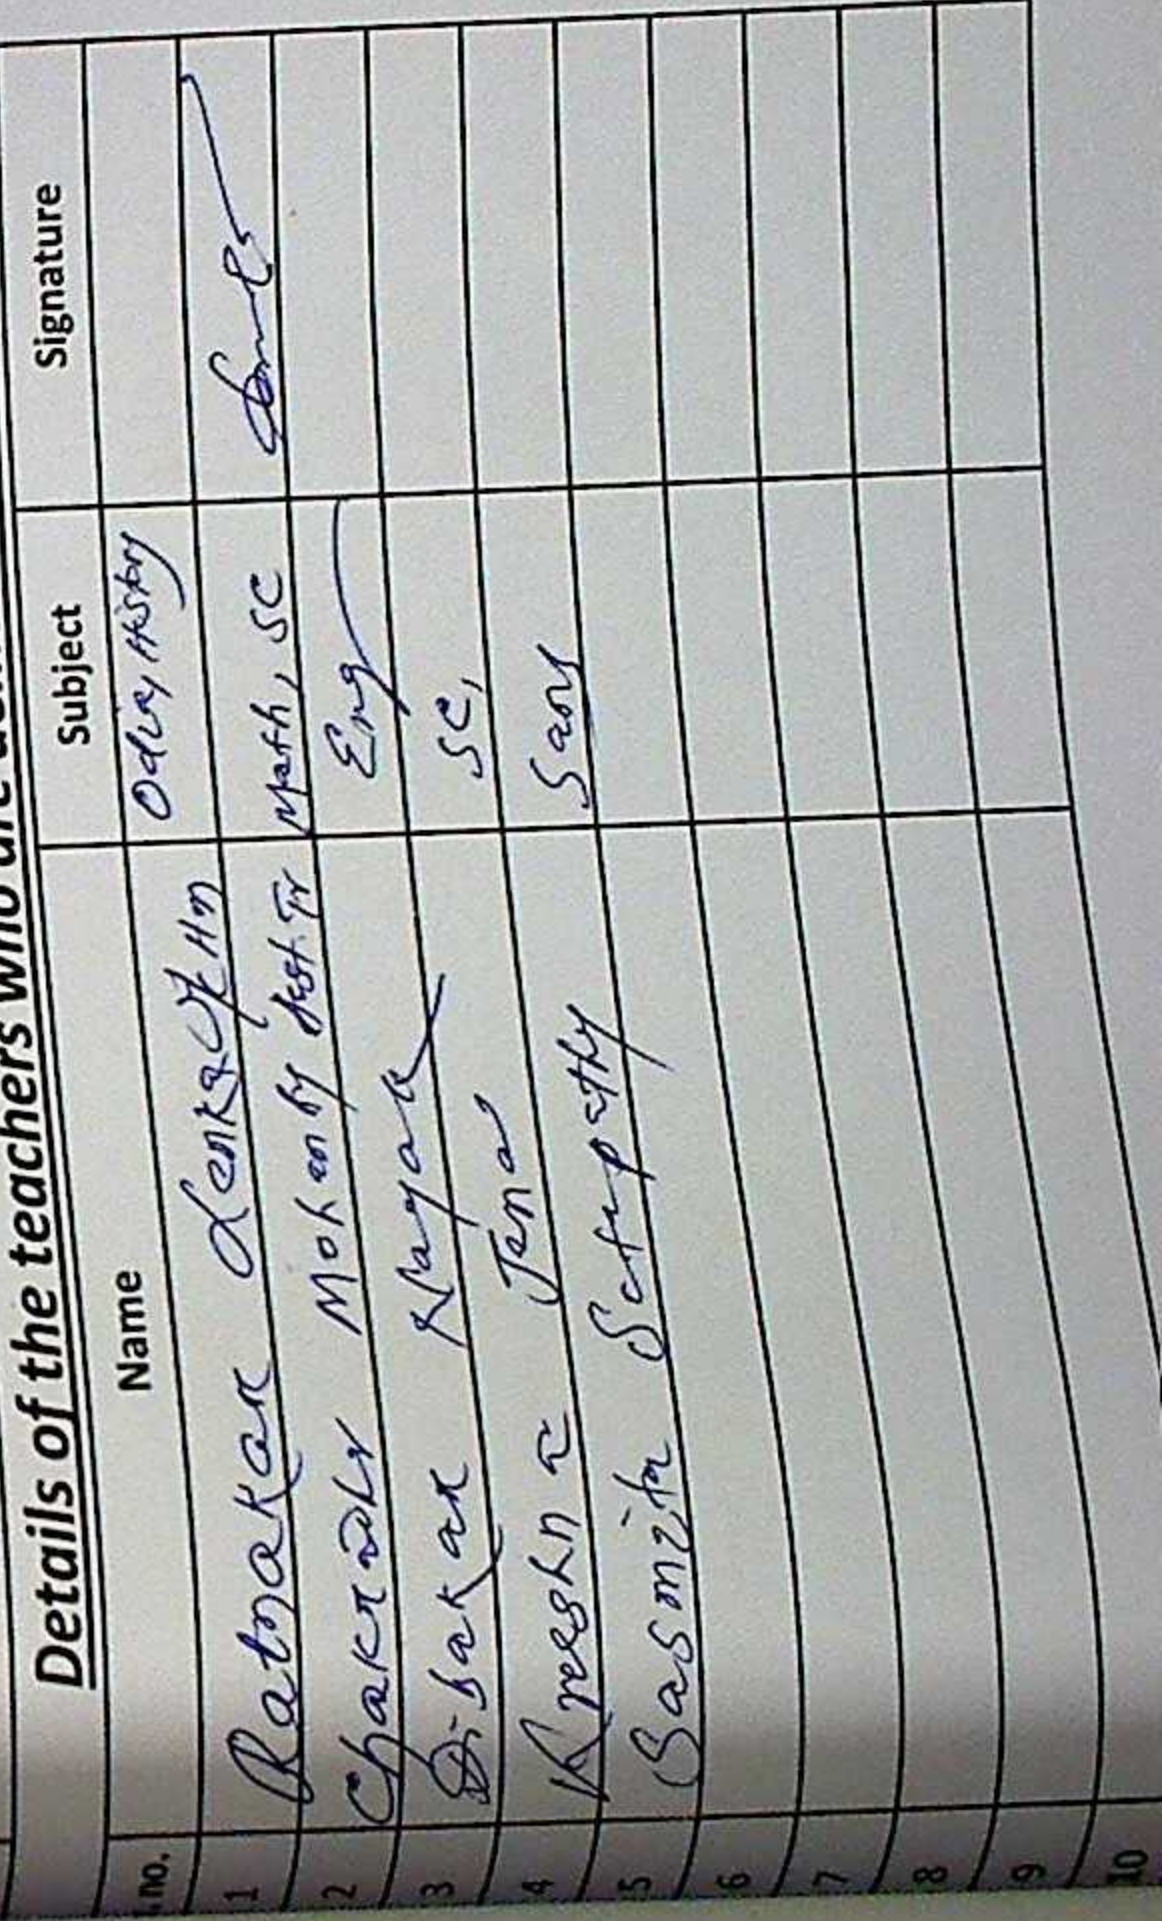 Details of the teachers who are
no. Name Subject Signature
1 Ratnakar Lenka HM Odia, History
2 Chakradhr Mohanty Asst. Tr Math, SC
3 Dibakar Nayak Eng
4 Kreshna Jena SC,
5 Sasmita Satpathy Sans
6
7
8
9
10